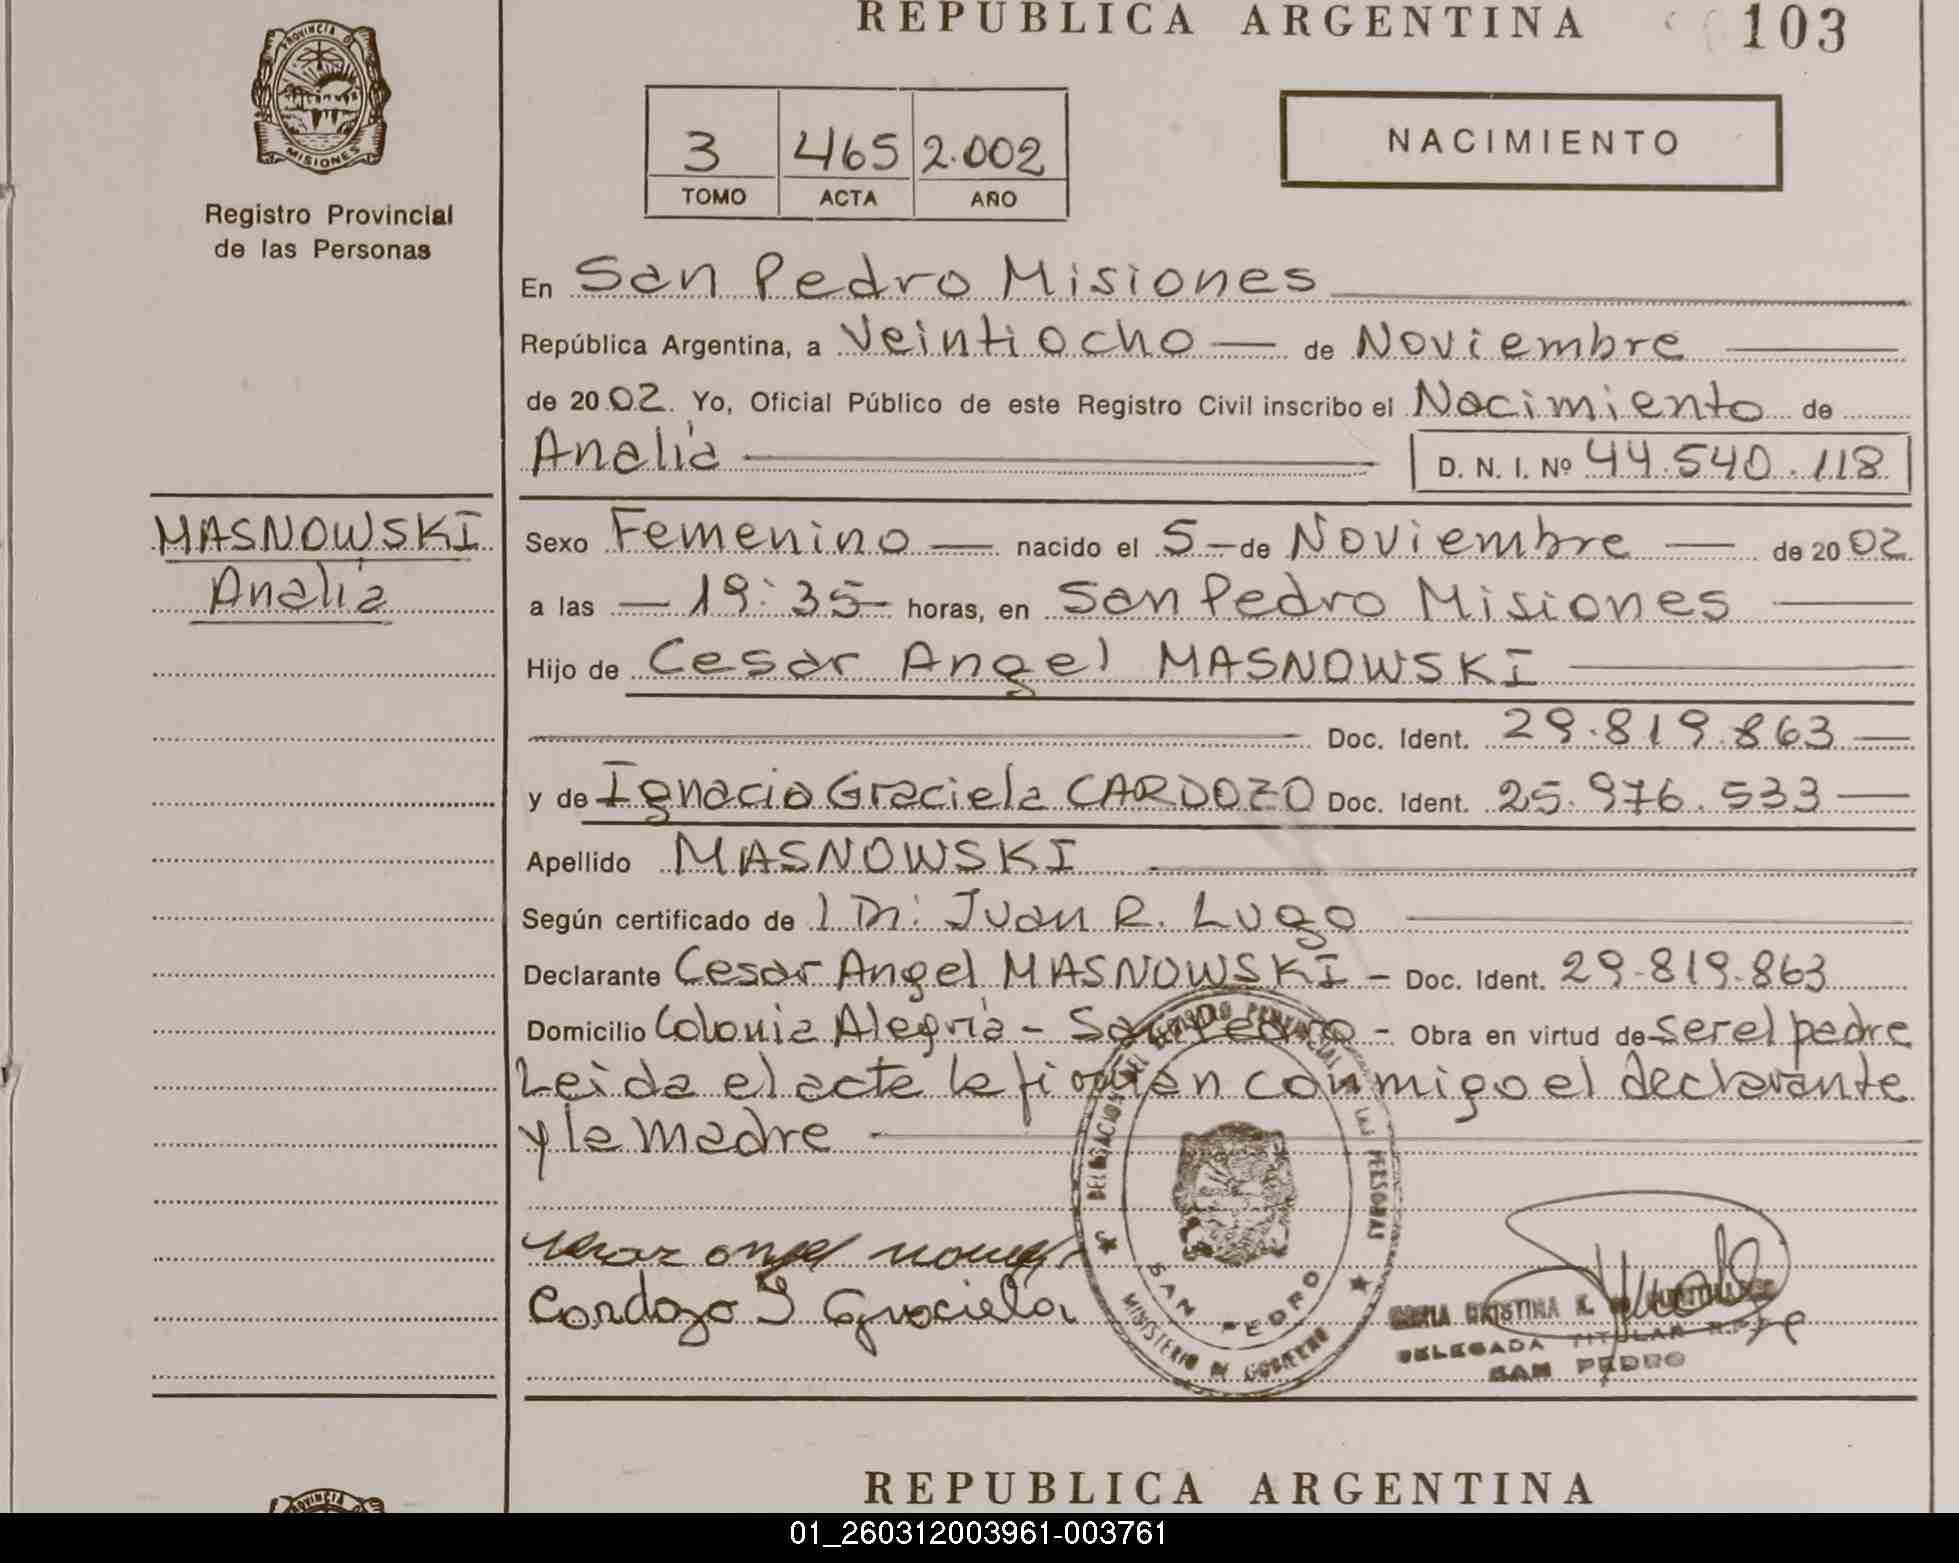 REPUBLICA ARGENTINA 103
PROVINCIA D
MISIONES
Registro Provincial
de las Personas
3 465 2.002
TOMO ACTA AÑO
NACIMIENTO
En San Pedro Misiones
República Argentina, a Veintiocho — de Noviembre
de 2002. Yo, Oficial Público de este Registro Civil inscribo el Nacimiento de
Analía D. N. I. Nº 44.540.118
MASNOWSKI
Analía
Sexo Femenino — nacido el 5 - de Noviembre — de 2002
a las — 19:35 — horas, en San Pedro Misiones
Hijo de Cesar Angel MASNOWSKI
Doc. Ident. 29.819.863 —
y de Ignacia Graciela CARDOZO Doc. Ident. 25.976.533 —
Apellido MASNOWSKI
Según certificado de Juan R. Lugo
Declarante Cesar Angel MASNOWSKI - Doc. Ident. 29.819.863
Domicilio Colonia Alegría - San Pedro - Obra en virtud de ser el padre
Leida el acta la firman conmigo el declarante
y la madre
DELEGACION DEL REGISTRO PROVINCIAL DE LAS PERSONAS
SAN PEDRO
MINISTERIO DE GOBIERNO
Cardozo I Graciela
CRISTINA
DELEGADA TITULAR
SAN PEDRO
REPUBLICA ARGENTINA
PROVINCIA
01_260312003961-003761